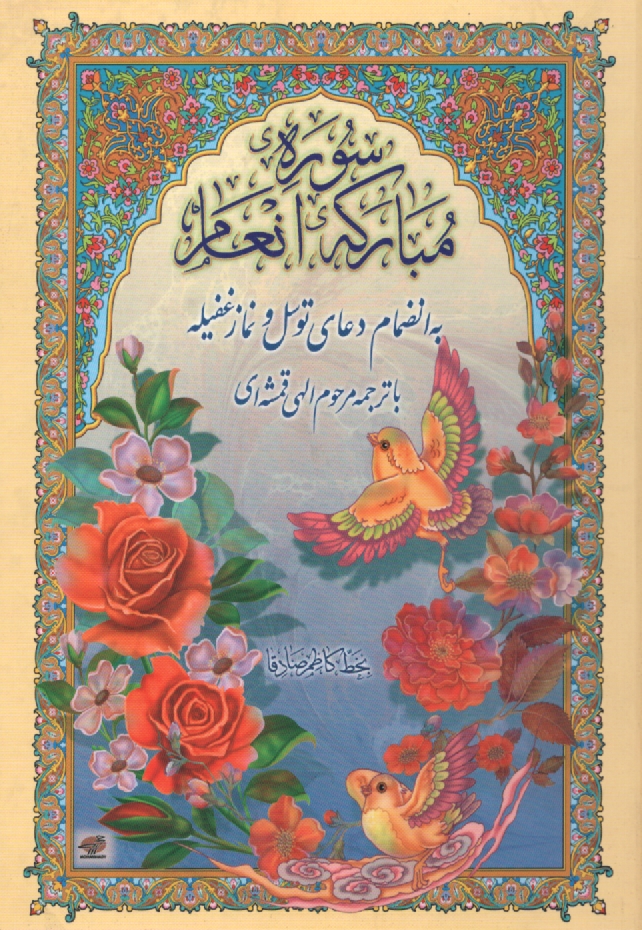 سُورَهٔ
مُبارَکهٔ اَنْعام
به انضمام دعای توسل و نماز غفیله
با ترجمه مرحوم الهی قمشه‌ای
بخطّ کاظم صادقا